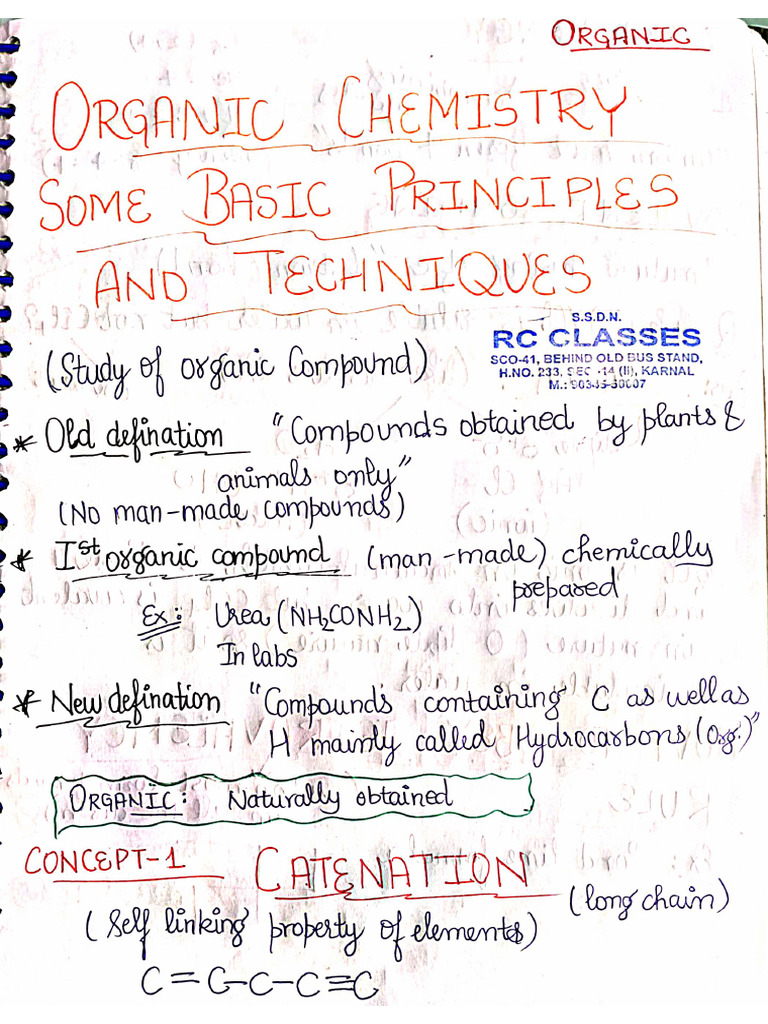 ORGANIC
ORGANIC CHEMISTRY
SOME BASIC PRINCIPLES
AND TECHNIQUES
S.S.D.N.
RC CLASSES
SCO-41, BEHIND OLD BUS STAND,
H.NO. 233, SEC -14 (II), KARNAL
M.:
(Study of organic Compound)
* Old defination "Compounds obtained by plants &
animals only"
(No man-made compounds)
* Ist organic compound (man-made) chemically
prepared
Ex: Urea (NH2CONH2)
In labs
* New defination "Compounds containing C as well as
H mainly called Hydrocarbons (Org.)"
ORGANIC: Naturally obtained
CONCEPT-1 CATENATION
(long chain)
(Self linking property of elements)
C=C-C-C≡C